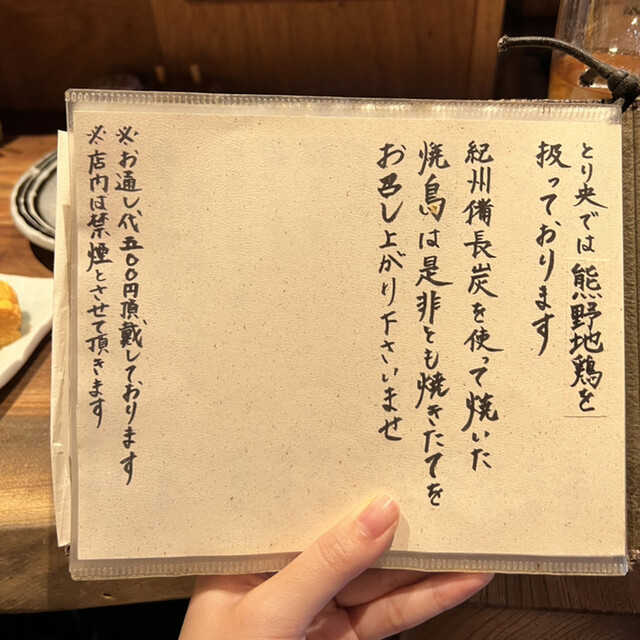 とり央では熊野地鶏を
扱っております
紀州備長炭を使って焼いた
焼鳥は是非とも焼きたてを
お召し上がり下さいませ
※お通し代五〇〇円頂戴しております
※店内は禁煙とさせて頂きます